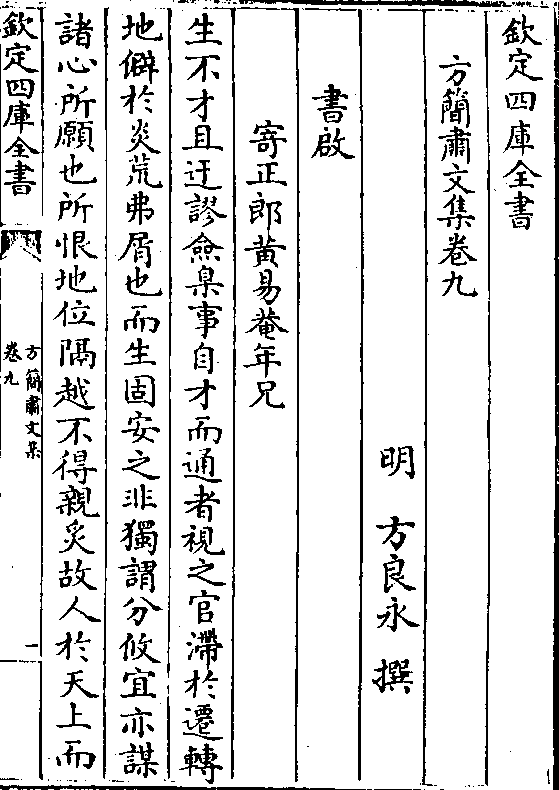 欽定四庫全書
方簡肅文集卷九
明 方良永 撰
書啟
寄正郎黄易菴年兄
生不才且迂謬僉臬事自才而通者視之官滯於遷轉
地僻於炎荒弗屑也而生固安之非獨謂分攸宜亦謀
諸心所願也所恨地位隔越不得親炙故人於天上而
欽定四庫全書
方簡肅文集
卷九
一